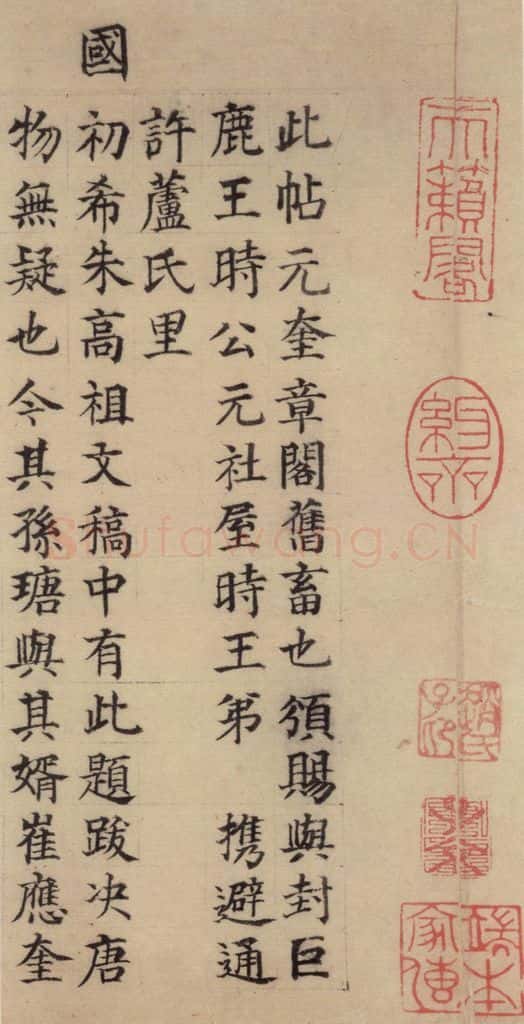 天籟閣
此帖元奎章閣舊畜也頒賜與封巨
鹿王時公元社屋時王弟 携避通
許蘆氏里
國初希朱高祖文稿中有此題跋决唐
物無疑也今其孫瑭與其婿崔應奎
Shufawang.CN